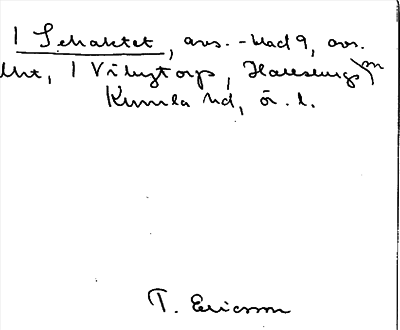 1 Schaktet, avs. -blad 9, avs.
1 Vibytorps, Hallsbergs sn
Kumla hd, ör. l.
T. Ericsson